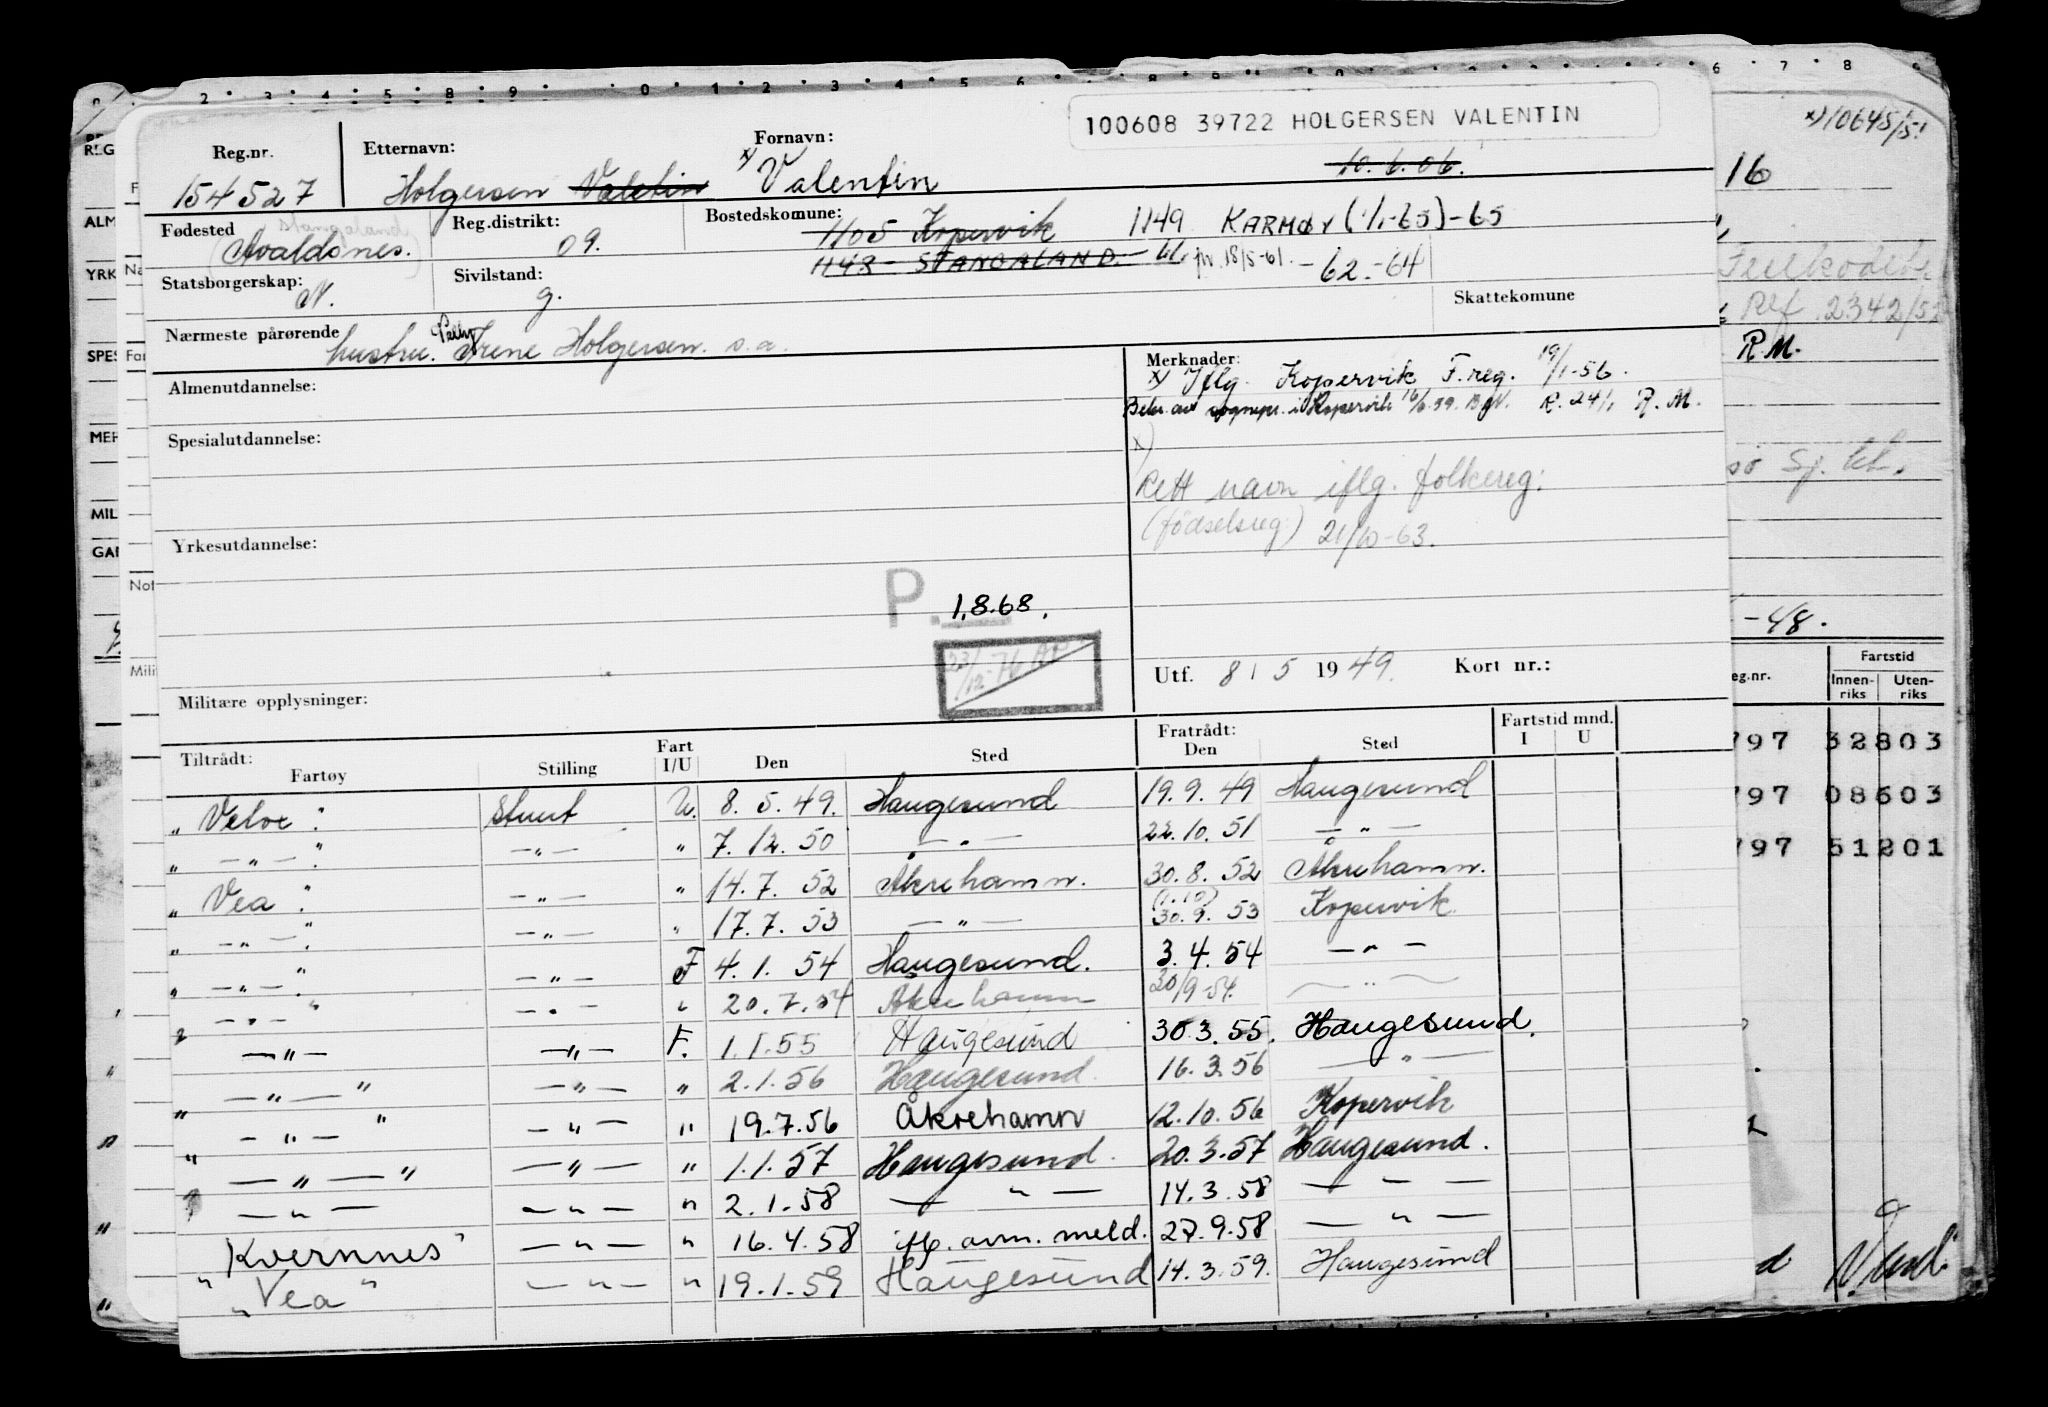 100608 39722 HOLGERSEN VALENTIN
x) 10645/51
Reg.nr. Etternavn: Fornavn:
154527 Holgersen Valetin x) Valentin 10.6.06.
Fødested Reg.distrikt: Bostedskomune:
Stangaland
Avaldsnes. 09. 1105 Kopervik 1149 KARMØY (1/1-65)-65
1148 - STANGALAND. - 18/5-61. -62.-64
Statsborgerskap: Sivilstand: Skattekomune
N. g.
Nærmeste pårørende
hustru. Irene Holgersen. s.a.
Almenutdannelse:
Merknader:
x) Iflg. Kopervik F.reg. 19/1-56.
i Kopervik R. 24/1 R.M.
Spesialutdannelse:
x)
Rett navn iflg. folkereg:
(fødselsreg) 21/10-63.
Yrkesutdannelse:
P. 1.8.68.
Utf. 8 / 5 1949. Kort nr.:
Militære opplysninger:
Tiltrådt: Fratrådt: Fartstid mnd.
Fartøy Stilling Fart I/U Den Sted Den Sted I U
" Velox " Stuert U. 8. 5. 49. Haugesund 19. 9. 49 Haugesund
" —"— " —"— " 7. 12. 50 —"— 22. 10. 51 —"—
" Vea " —"— " 14. 7. 52 Åkrehamn. 30. 8. 52 Åkrehamn.
" —"— " —"— " 17. 7. 53 —"— (1.10) 30. 9. 53 Kopervik
" —"— " —"— F 4. 1. 54 Haugesund. 3. 4. 54 —"—
—"— " —"— " 20. 7. 54 Åkrehamn 30/9-54. —"—
" —"— —"— F. 1. 1. 55 Haugesund 30.3.55. Haugesund.
—"— " —"— " 2.1.56 Haugesund. 16.3.56 —"—
" —"— " —"— " 19.7.56 Åkrehamn 12.10.56 Kopervik
" —"— " —"— " 1.1.57 Haugesund. 20.3.57 Haugesund.
" —"— —"— " 2.1.58 —"— 14.3.58 —"—
Kvernnes " —"— " 16.4.58 iflg. avm. meld. 27.9.58 —"—
" Vea " —"— " 19.1.59 Haugesund 14.3.59. Haugesund
16
Feilkodet
Ref. 2342/52
R.M.
-48.
eg.nr. Fartstid
Innen-riks Uten-riks
797 32803
797 08603
797 51201
REG
ALM
YRK
SPES
MER
MIL
Not
Mili